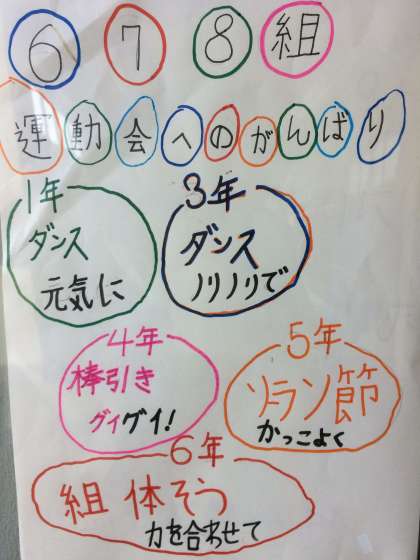 678組
運動会へのがんばり
1年
ダンス
元気に
3年
ダンス
ノリノリで
4年
棒引き
グイグイ!
5年
ソーラン節
かっこよく
6年
組体そう
力を合わせて